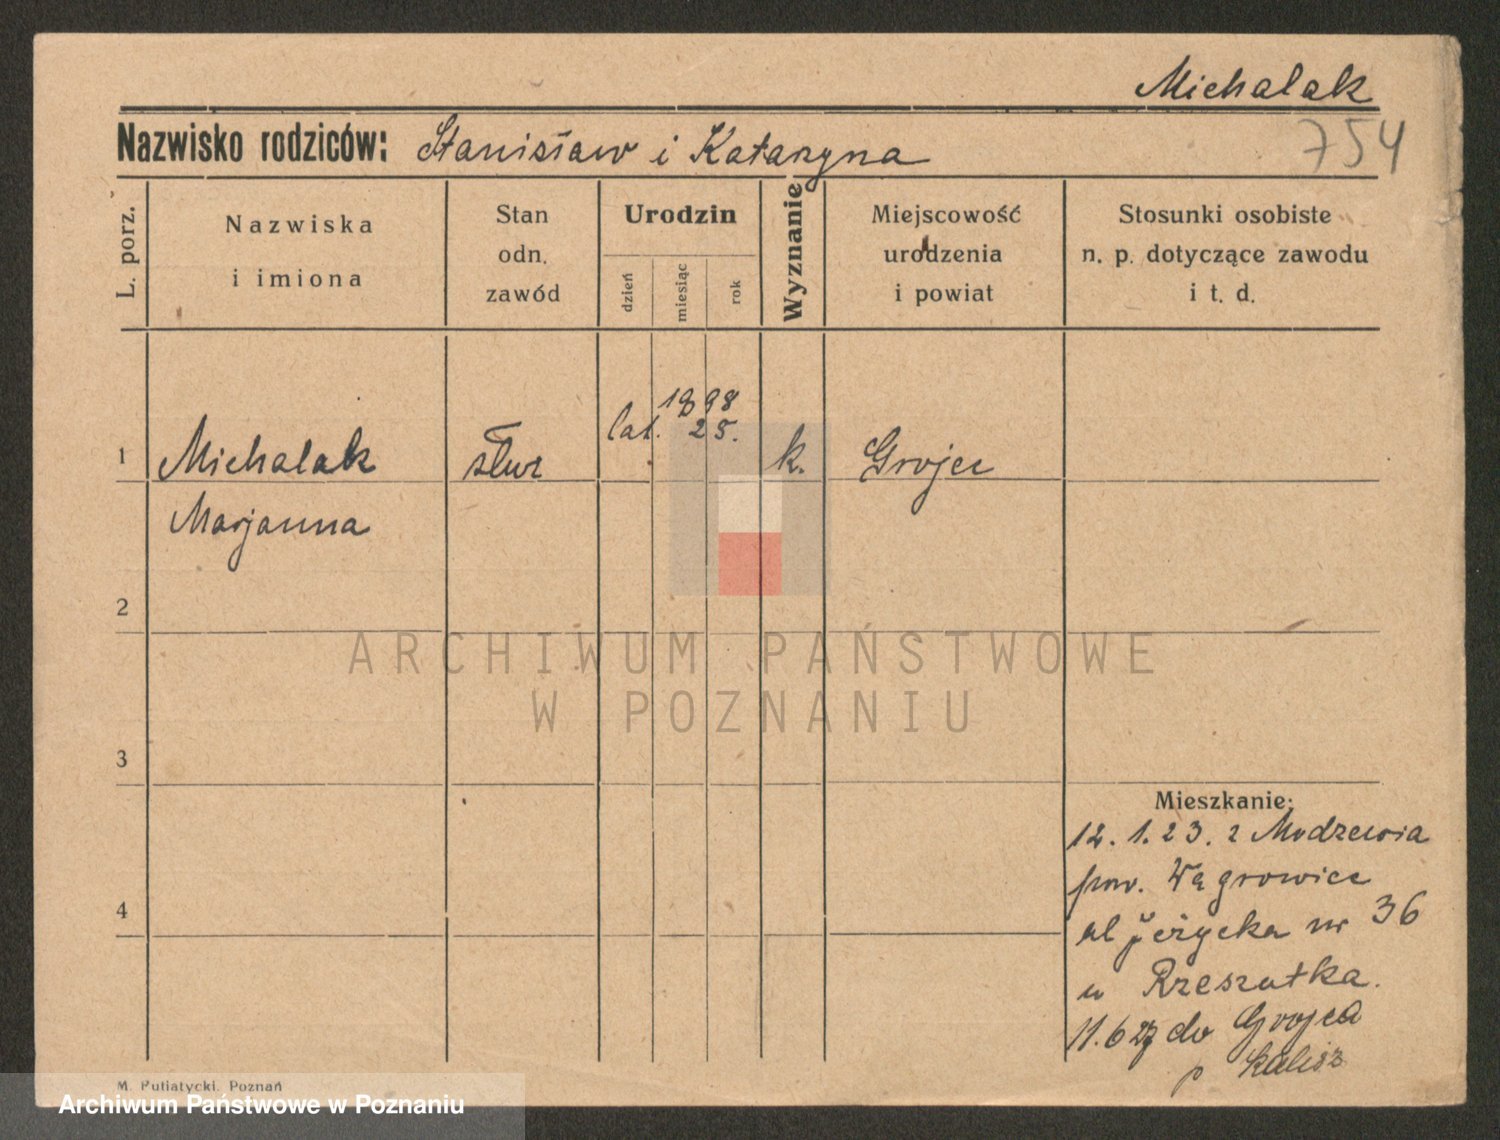 Michalak
Nazwisko rodziców: Stanisław i Katarzyna
754
L. porz.
Nazwiska
i imiona
Stan
odn.
zawód
Urodzin
dzień
miesiąc
rok
Wyznanie
Miejscowość
urodzenia
i powiat
Stosunki osobiste
n. p. dotyczące zawodu
i t. d.
1898
1 Michalak służ lat. 25. k. Grojec
Marjanna
2
ARCHIWUM PAŃSTWOWE
W POZNANIU
3
Mieszkanie:
12. 1. 23. z Modzewia
pow. Wągrowiec
4
ul Jeżycka nr 36
u Rzeszutka.
11. 6 27 do Grojca
p Kalisz
M. Putiatycki, Poznań
Archiwum Państwowe w Poznaniu